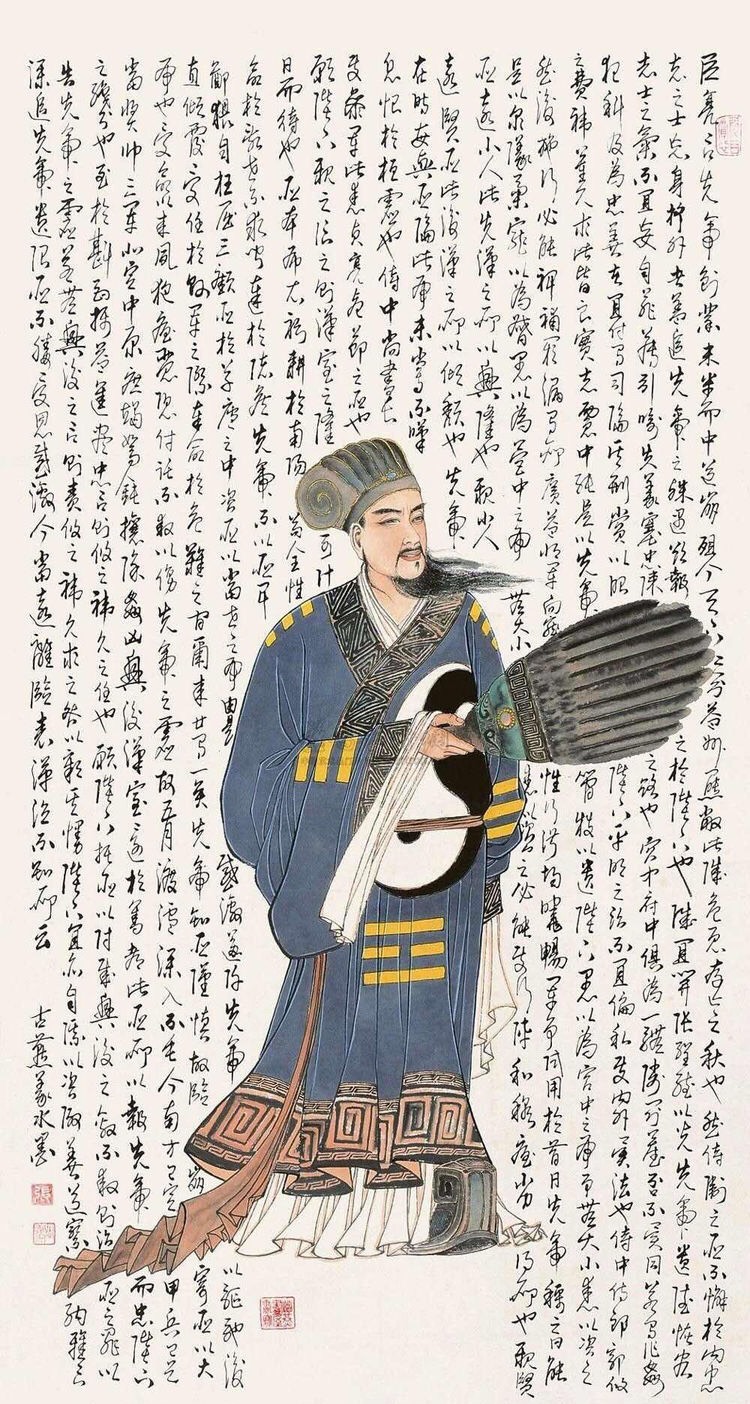 臣亮言先帝創業未半而中道崩殂今天下三分益州疲敝此誠危急存亡之秋也然侍衛之臣不懈於內忠
志之士忘身於外者蓋追先帝之殊遇欲報之於陛下也誠宜開張聖聽以光先帝遺德恢宏
志士之氣不宜妄自菲薄引喻失義塞忠諫之路也宮中府中俱為一體陟罰臧否不宜異同若有作姦
犯科及為忠善者宜付有司論其刑賞以昭陛下平明之治不宜偏私使內外異法也侍中侍郎郭攸
之費禕董允等此皆良實志慮忠純是以先帝簡拔以遺陛下愚以為宮中之事事無大小悉以咨之
然後施行必能裨補闕漏有所廣益將軍向寵性行淑均曉暢軍事試用於昔日先帝稱之曰能
是以眾議舉寵以為督愚以為營中之事無大小悉以咨之必能使行陣和穆優劣得所也親賢
臣遠小人此先漢之所以興隆也親小人
遠賢臣此後漢之所以傾頹也先帝
在時每與臣論此事未嘗不嘆
息恨於桓靈也侍中尚書長
史參軍此悉貞亮死節之臣也
願陛下親之信之則漢室之隆可計
日而待也臣本布衣躬耕於南陽苟全性
命於亂世不求聞達於諸侯先帝不以臣卑
鄙猥自枉屈三顧臣於草廬之中咨臣以當世之事由是感激遂許先帝以驅馳後
直傾覆受任於敗軍之際奉命於危難之間爾來廿有一矣先帝知臣謹慎故臨崩寄臣以大
事也受命以來夙夜憂嘆恐付託不效以傷先帝之靈故五月渡瀘深入不毛今南方已定甲兵已足
當獎帥三軍北定中原庶竭駑鈍攘除姦凶興復漢室還於舊都此臣所以報先帝而忠陛下
之職分也至於斟酌損益進盡忠言則攸之禕允之任也願陛下托臣以討賊興復之效不效則治臣之罪以
告先帝之靈若無興復之言則責攸之禕允之咎以彰其慢陛下宜亦自謀以咨諏善道察納雅言
深追先帝遺限臣不勝受恩感激今當遠離臨表涕泣不知所云